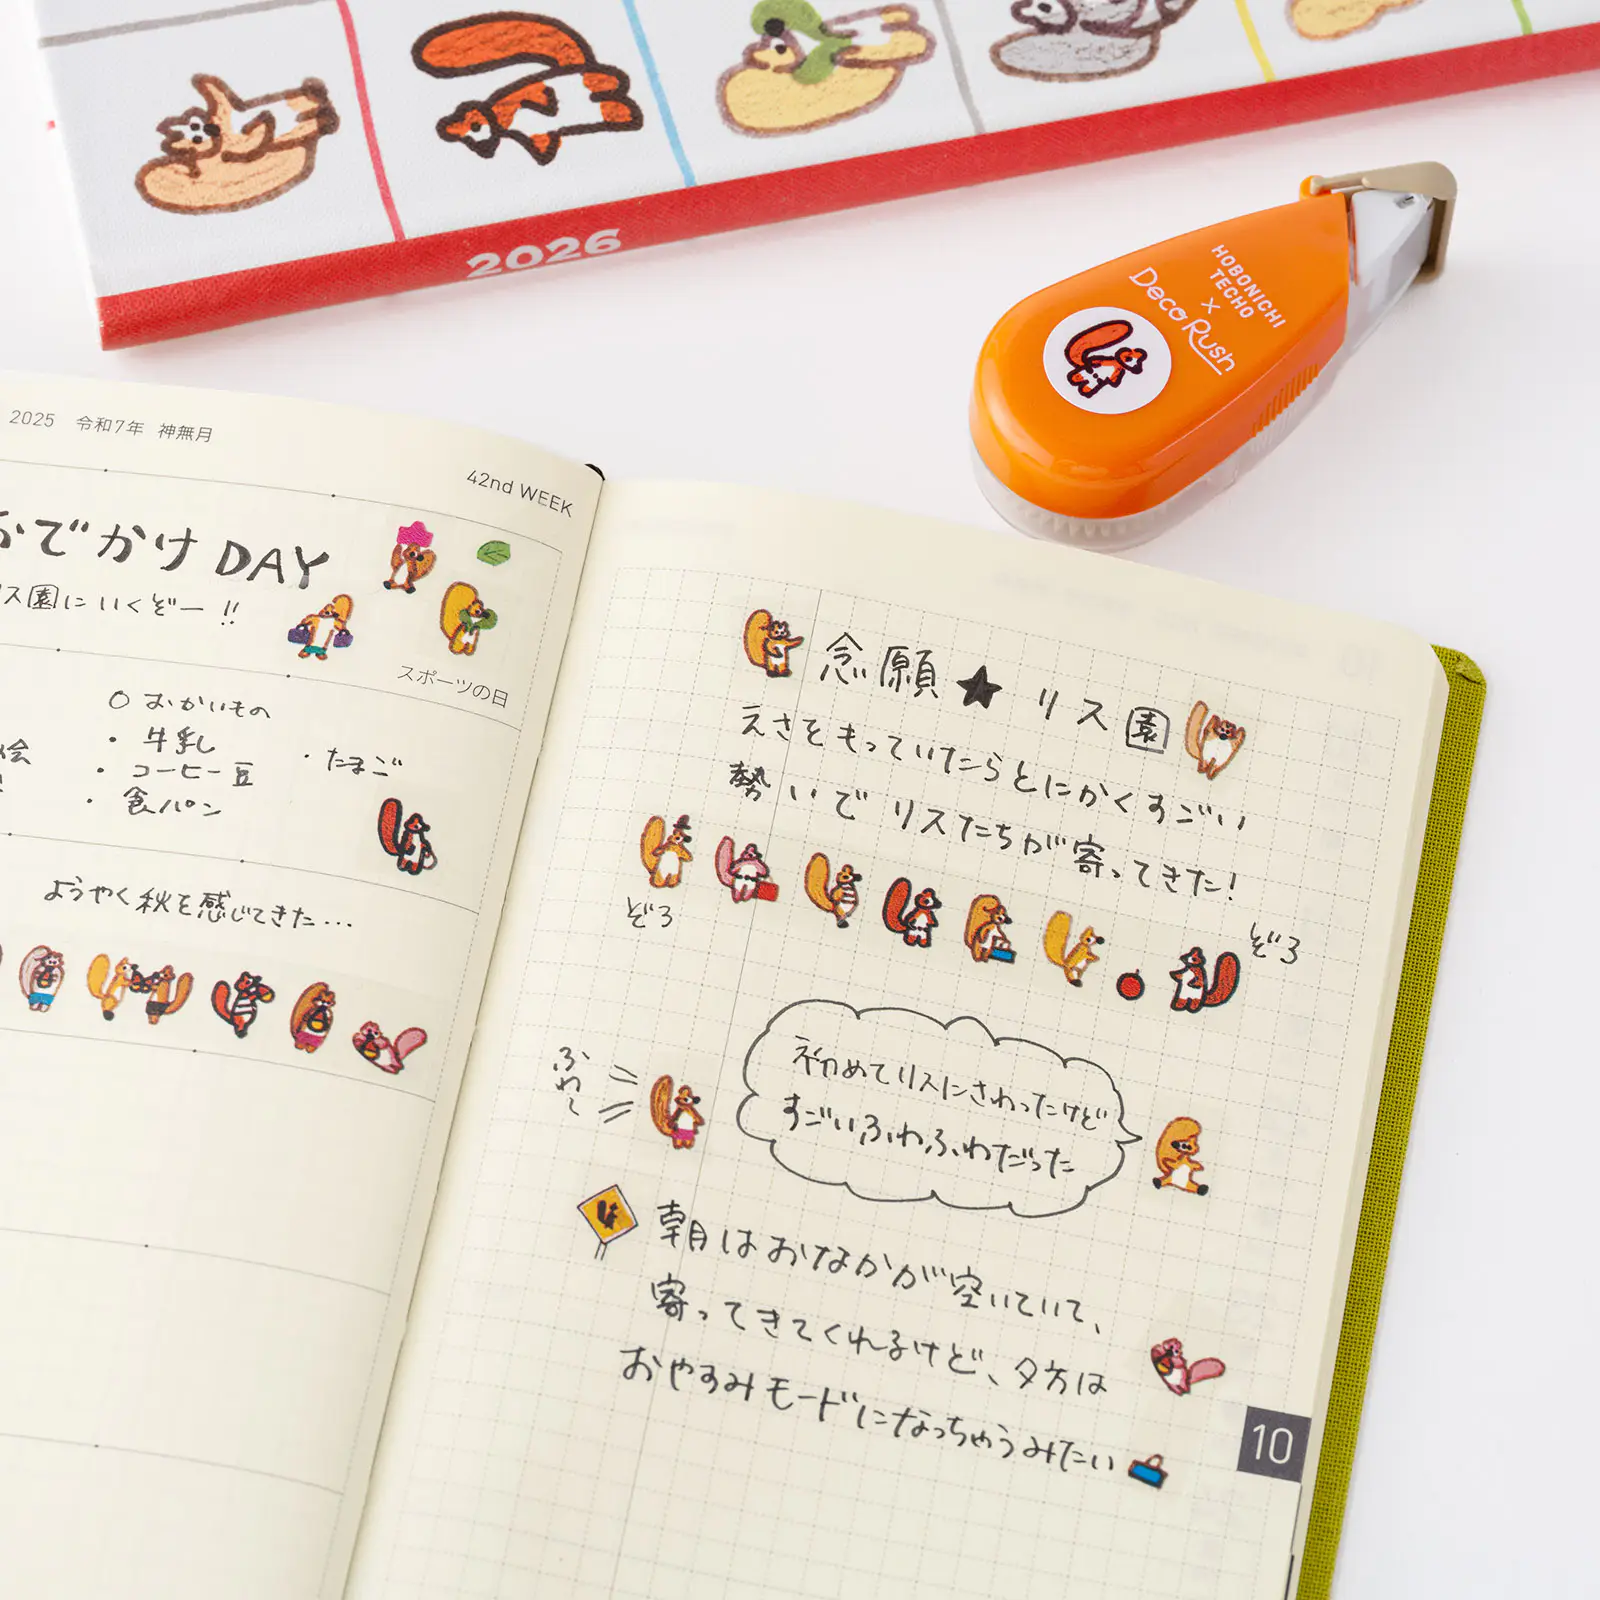 2026
HOBONICHI
TECHO
×
Deco Rush
2025 令和7年 神無月
42nd WEEK
おでかけ DAY
リス園にいくぞー!!
スポーツの日
○ おかいもの
・ 牛乳
・ コーヒー豆
・ 食パン
・たまご
絵
ようやく秋を感じてきた…
念願★リス園
えさをもっていたらとにかくすごい
勢いでリスたちが寄ってきた!
ぞろ
ぞろ
ふわ〜
初めてリスにさわったけど
すごいふわふわだった
朝はおなかが空いていて、
寄ってきてくれるけど、夕方は
おやすみモードになっちゃうみたい
10